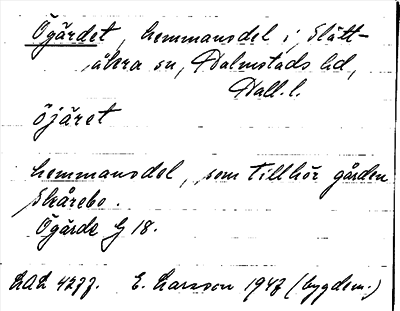 Ögärdet, hemmansdel i Slätt-
åkra sn, Halmstads hd,
Hall. l.
öjäret
hemmansdel, som tillhör gården
Skårebo.
Ögärde G 18.
LAL 4277. E. Larsson 1947 (bygdem.)